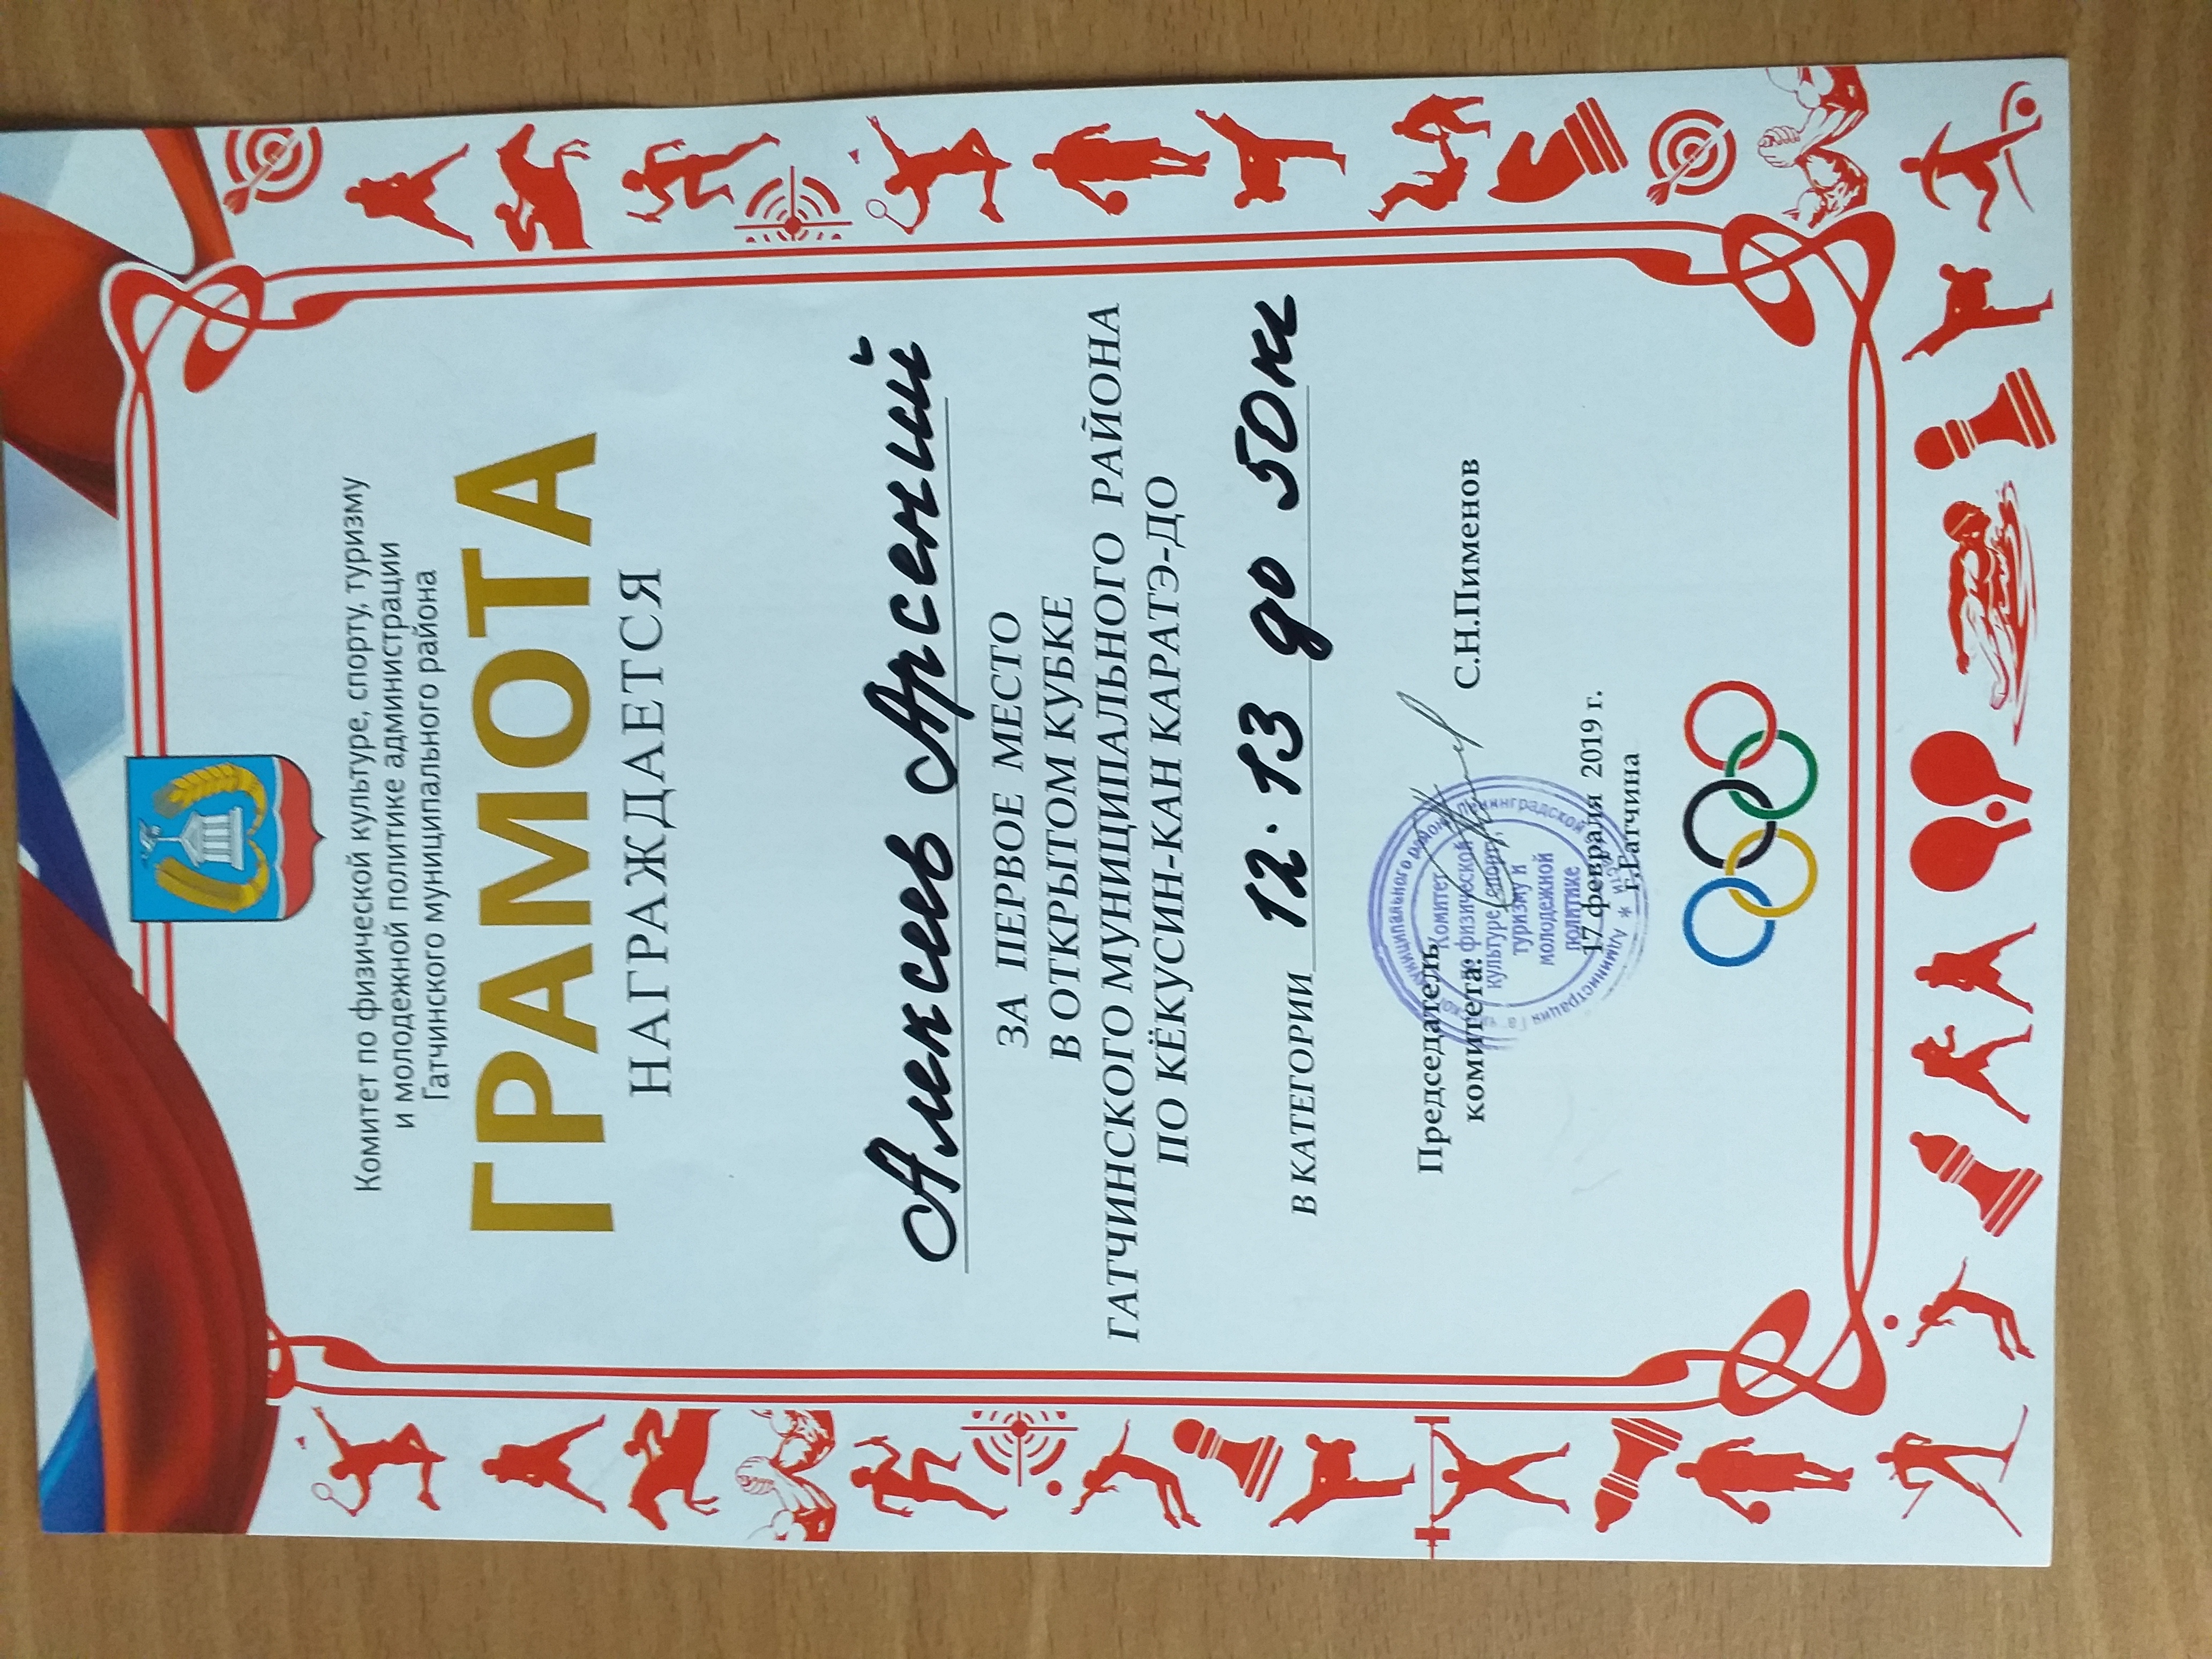 Комитет по физической культуре, спорту, туризму
и молодежной политике администрации
Гатчинского муниципального района
ГРАМОТА
НАГРАЖДАЕТСЯ
Алексеев Арсений
ЗА ПЕРВОЕ МЕСТО
В ОТКРЫТОМ КУБКЕ
ГАТЧИНСКОГО МУНИЦИПАЛЬНОГО РАЙОНА
ПО КЁКУСИН-КАН КАРАТЭ-ДО
В КАТЕГОРИИ 12-13 до 50кг
Председатель
комитета: С.Н.Пименов
муниципального района Ленинградской области * Администрация
Комитет
по физической
культуре, спорту,
туризму и
молодежной
политике
17 февраля 2019 г.
г.Гатчина